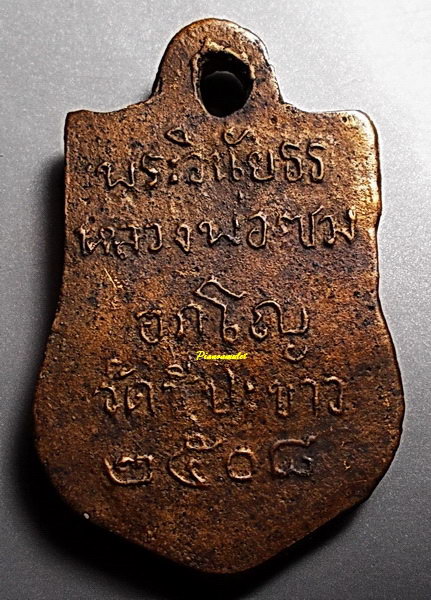 พระวินัยธร
หลวงพ่อซวง
อภโญ
Pianramulet
วัดชีปะขาว
๒๕๐๘